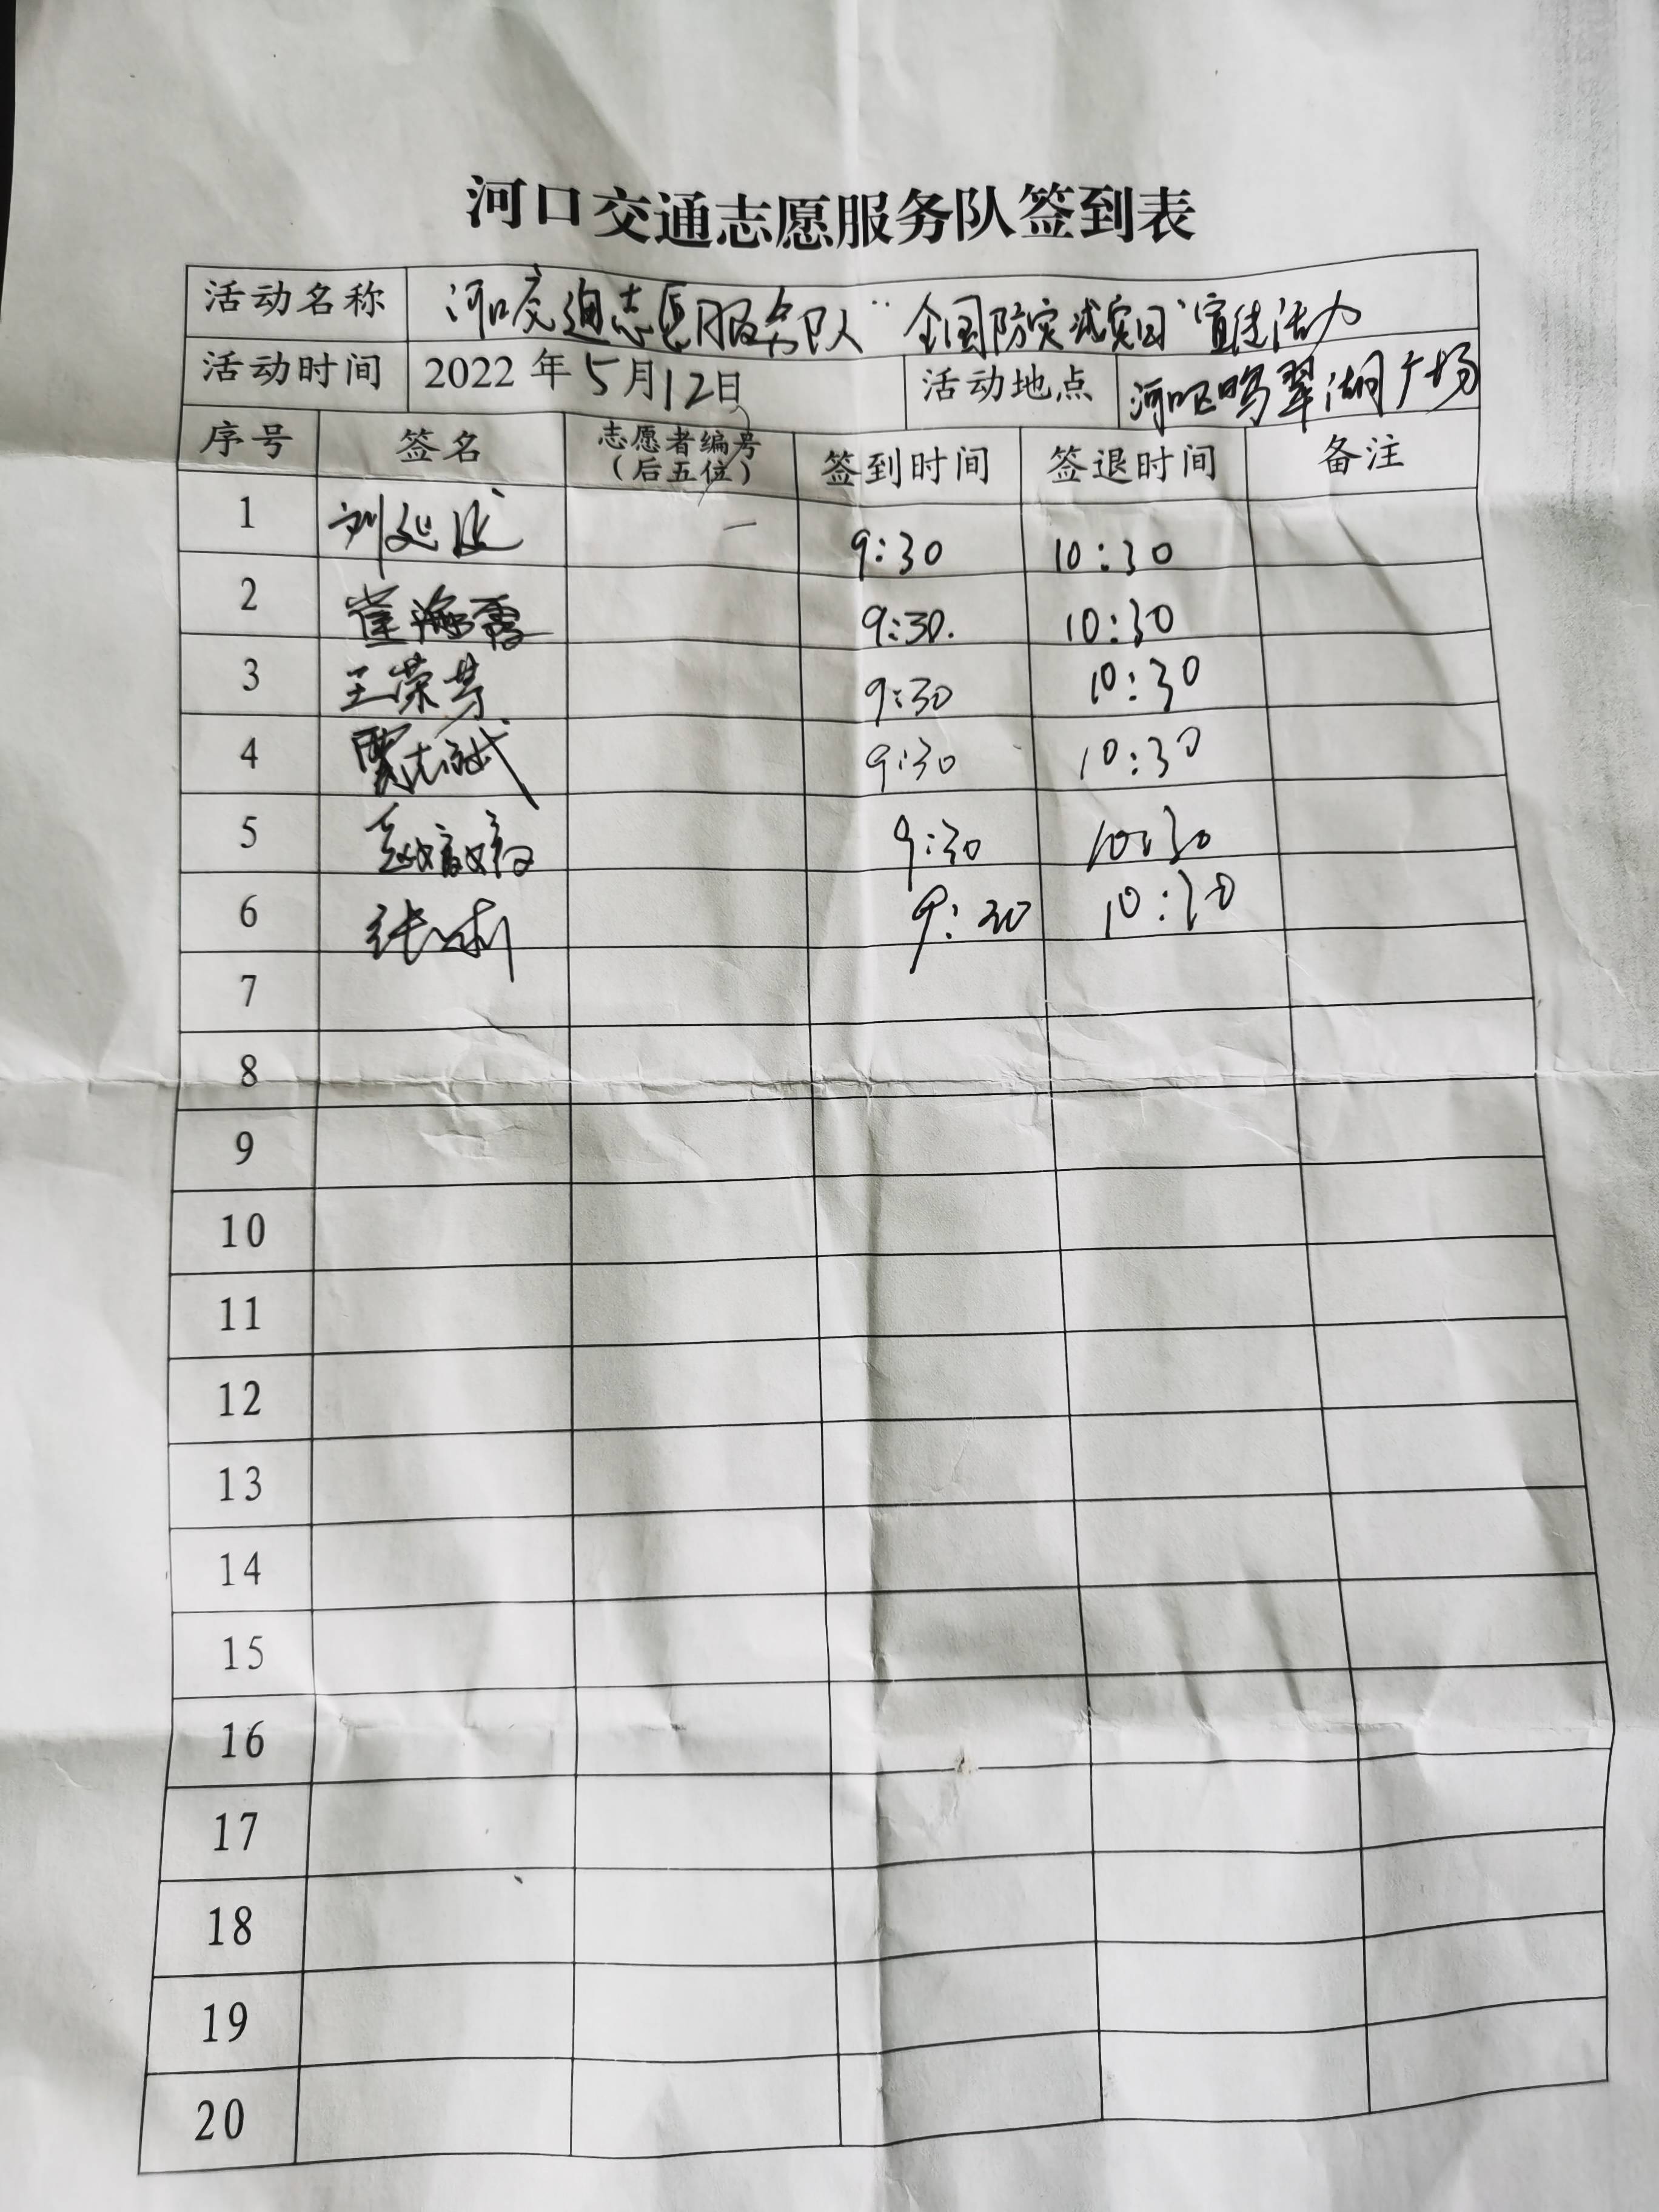 河口交通志愿服务队签到表
活动名称 河口交通志愿服务队“全国防灾减灾日”宣传活动
活动时间 2022年5月12日 活动地点 河口区鸣翠湖广场
序号 签名 志愿者编号（后五位） 签到时间 签退时间 备注
1 刘延 9:30 10:30
2 崔海霞 9:30. 10:30
3 王荣芳 9:30 10:30
4 贾志斌 9:30 10:30
5 9:30 10:30
6 张莉 9:30 10:30
7
8
9
10
11
12
13
14
15
16
17
18
19
20